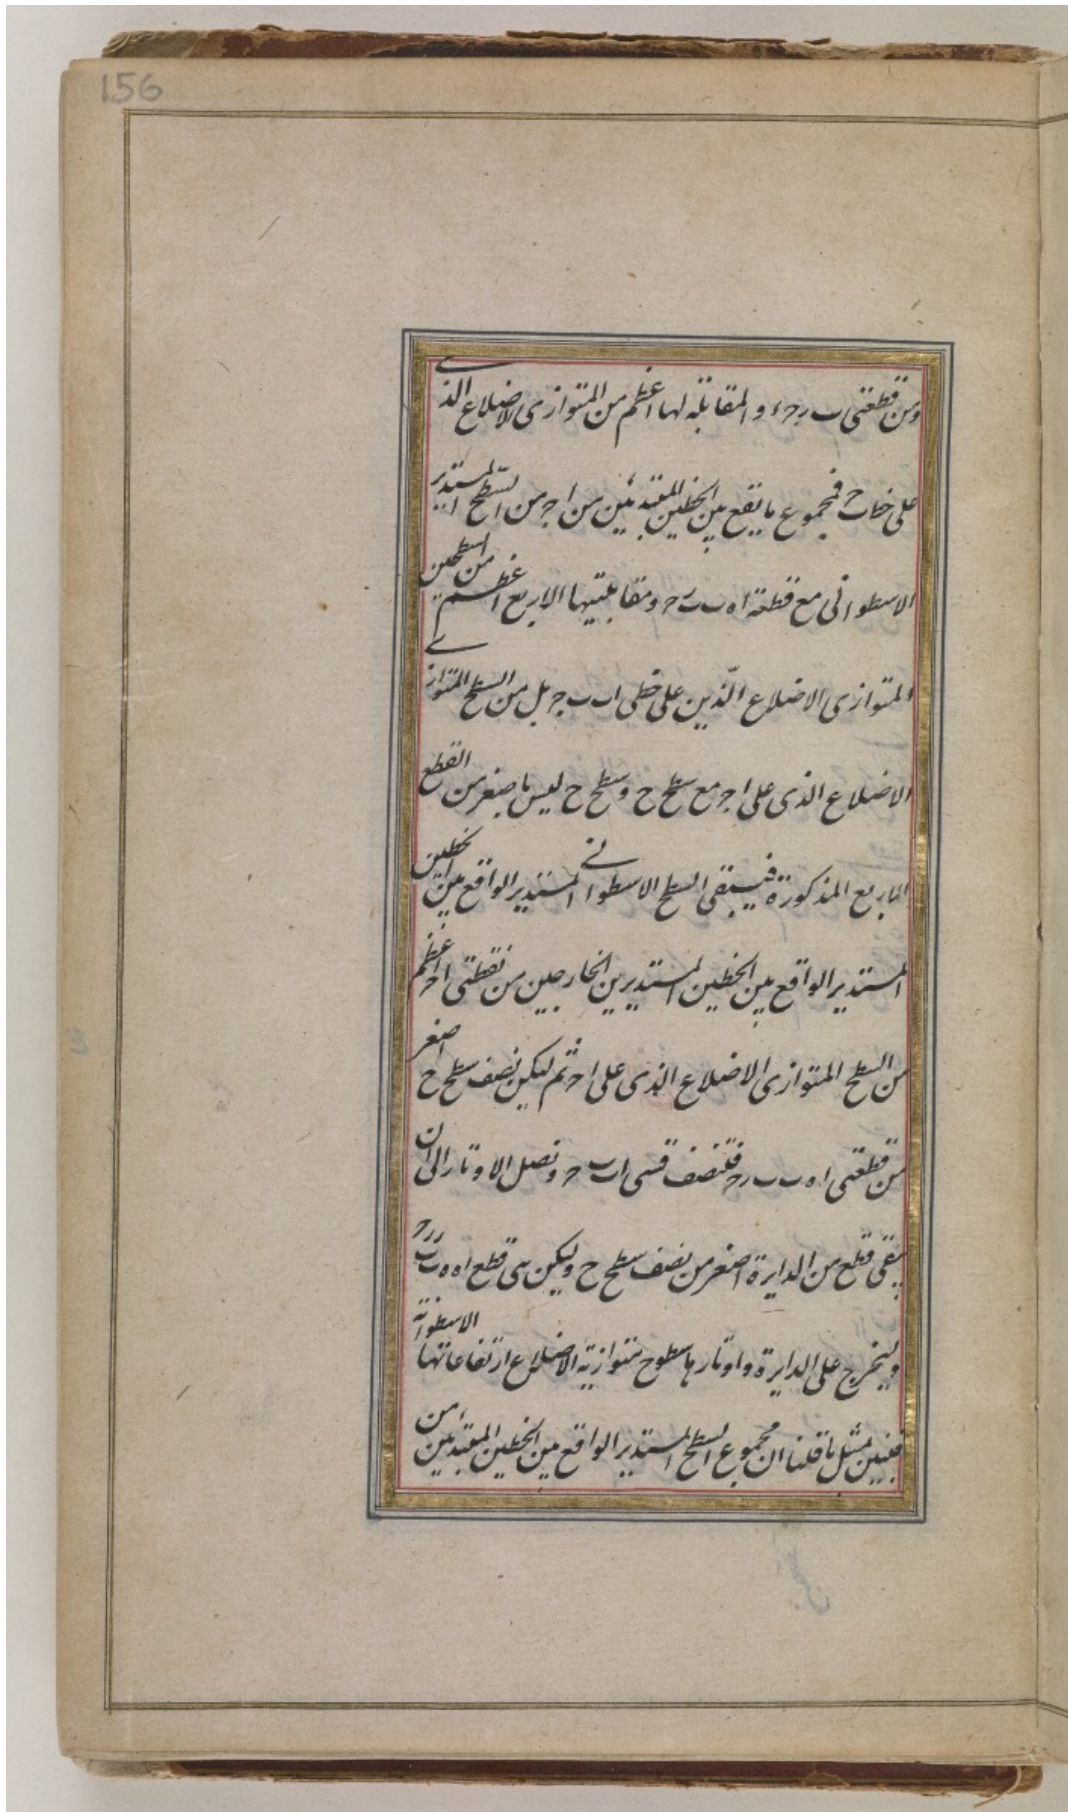 156
ومن قطعتى ب رجء والمقابلة لها اعظم من المتوازى الاضلاع الذى
على خط ب ح فمجموع ما يقع بين الخطين المبتدئين من ا جـ من السطح المستدير
الاسطوانى مع قطعة ا ه ب ب ر ح ومقابلتيها الاربع اعظم من السطحين
المتوازى الاضلاع الذين على خطى ا ب ب جـ بل من السطح المتوازى
الاضلاع الذى على ا جـ مع سطح ح وسطح ح ليس باصغر من القطع
الاربع المذكورة فيبقى السطح الاسطوانى المستدير الواقع بين الخطين
المستدير الواقع بين الخطين المستديرين الخارجين من نقطتى ا ح اعظم
من السطح المتوازى الاضلاع الذى على ا ح ثم ليكن نصف سطح ح اصغر
من قطعتى ا ه ب ب ر ح فلننصف قسى ا ب ب ح ونصل الاوتار الى ان
يبقى قطع من الدايرة اصغر من نصف سطح ح وليكن هى قطع ا ه ه ب ب ر ر ح
وليخرج على الدايرة واوتارها سطوح متوازية الاضلاع ارتفاعاتها الاسطوانة
فنبين بمثل ما قلنا ان مجموع السطح المستدير الواقع بين الخطين المبتدئين من